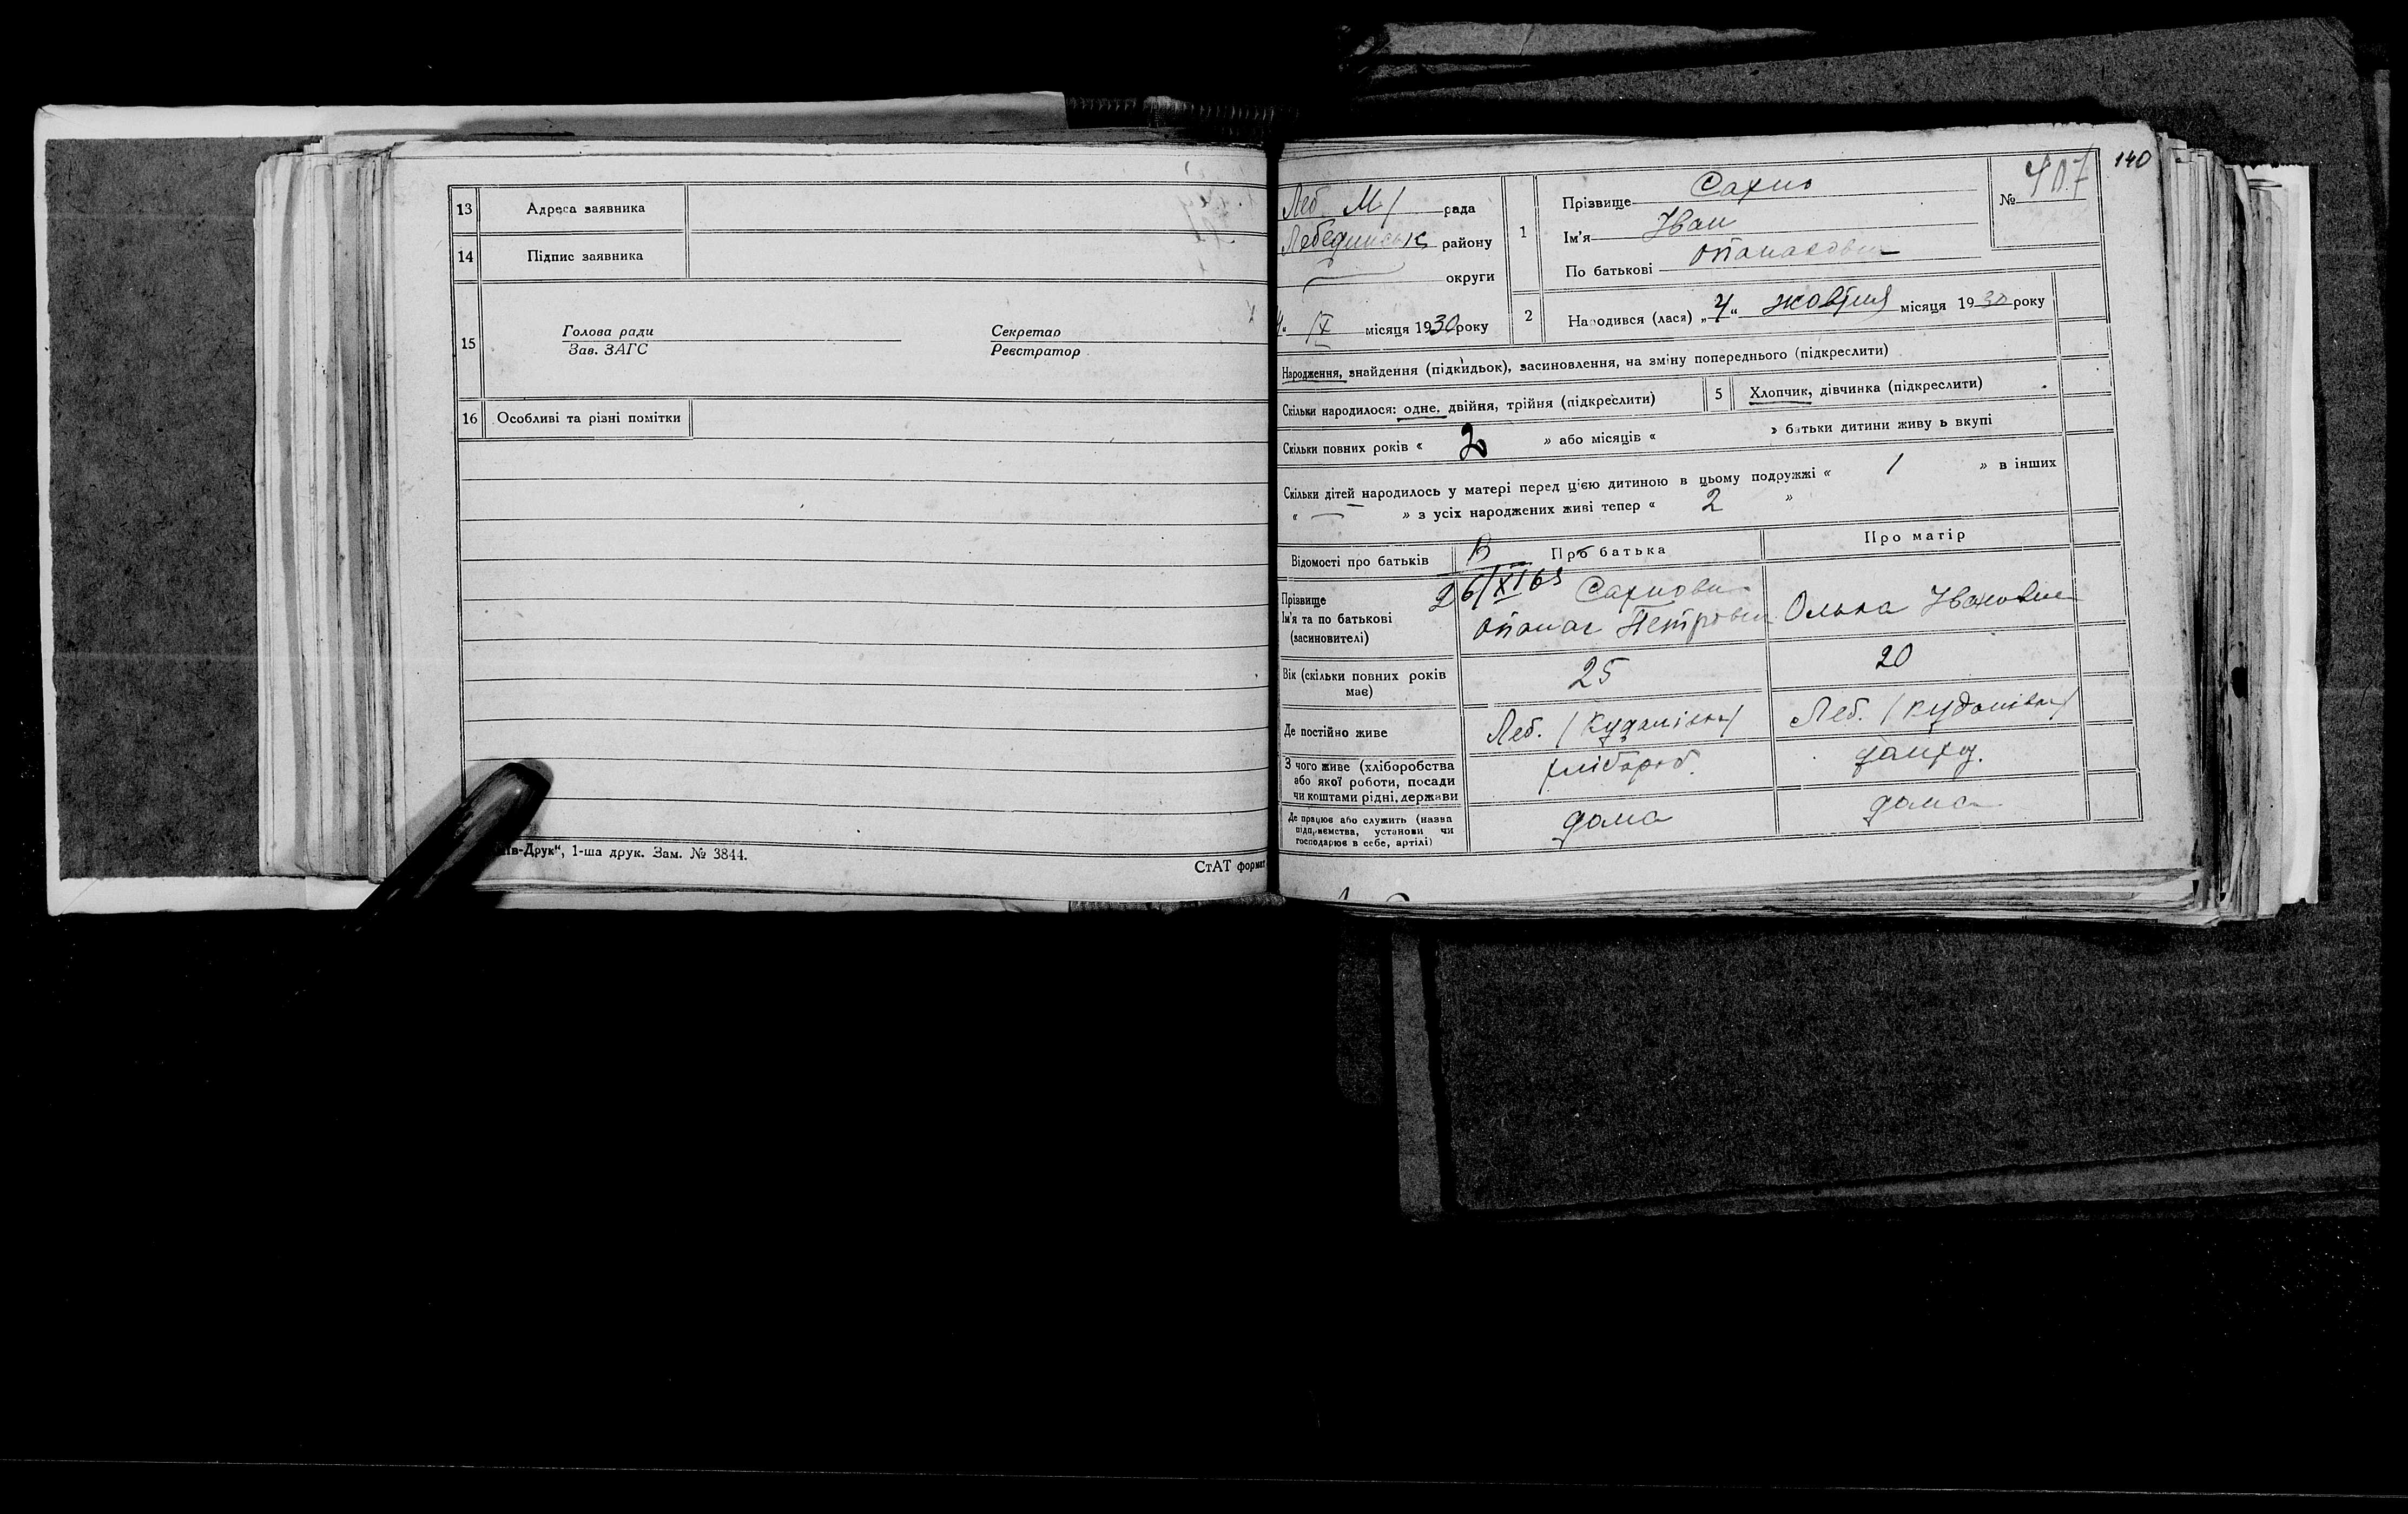 13 Адреса заявника
14 Підпис заявника
15 Голова ради Секретар
Зав. ЗАГС Реєстратор
16 Особливі та різні помітки
ів-Друк", 1-ша друк. Зам. № 3844.
СтАТ формат
140
Леб. М/ рада
Лебединськ району
округи
IX місяця 1930 року
1 Прізвище Сахно
Ім'я Іван
По батькові Опанасович
№ 407
2 Народився (лася) „4" жовтня місяця 1930 року
Народження, знайдення (підкидьок), засиновлення, на зміну попереднього (підкреслити)
Скільки народилося: одне, двійня, трійня (підкреслити) 5 Хлопчик, дівчинка (підкреслити)
Скільки повних років « 2 » або місяців « » батьки дитини живу ь вкупі
Скільки дітей народилось у матері перед цією дитиною в цьому подружжі « 1 » в інших
« — » з усіх народжених живі тепер « 2 »
Відомості про батьків В Про батька Про матір
26/XI 63
Прізвище
Ім'я та по батькові
(засиновителі)
Опанас Петрович Ольга Івановна
Вік (скільки повних років має) 25 20
Де постійно живе Леб. Леб.
З чого живе (хліборобства
або якої роботи, посади
чи коштами рідні, держави
хлібороб.
Де працює або служить (назва
підприємства, установи чи
господарює в себе, артілі)
дома дома